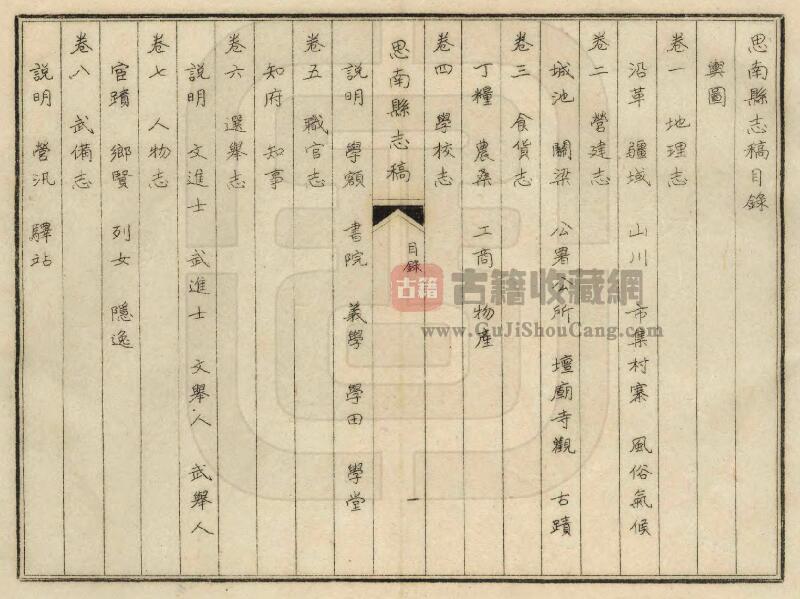 思南縣志稿目錄
輿圖
卷一 地理志
沿革 疆域 山川 市集村寨 風俗氣候
卷二 營建志
城池 關梁 公署公所 壇廟寺觀 古蹟
卷三 食貨志
丁糧 農桑 工商 物產
卷四 學校志
思南縣志稿
目錄
一
說明 學額 書院 義學 學田 學堂
卷五 職官志
知府 知事
卷六 選舉志
說明 文進士 武進士 文舉人 武舉人
卷七 人物志
宦蹟 鄉賢 列女 隱逸
卷八 武備志
說明 營汛 驛站
古籍 古籍收藏網
www.GuJiShouCang.com